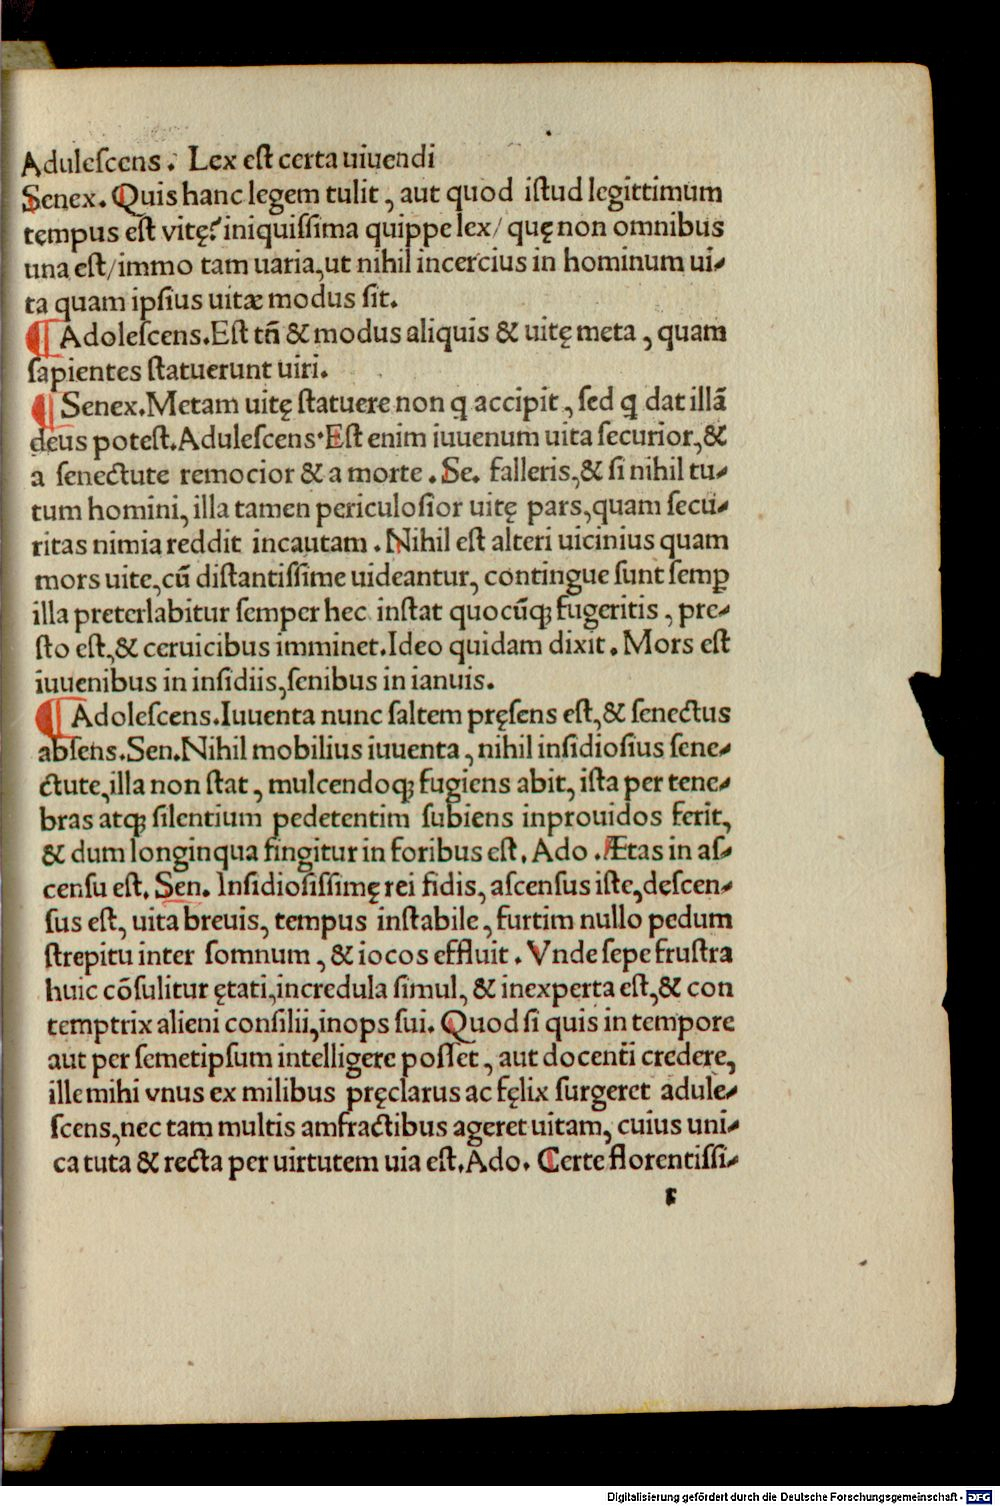 Adulescens. Lex est certa uiuendi
Senex. Quis hanc legem tulit, aut quod istud legittimum
tempus est vitę? iniquissima quippe lex/ quę non omnibus
una est/immo tam uaria, ut nihil incercius in hominum ui-
ta quam ipsius uitæ modus sit.
¶ Adolescens. Est tñ & modus aliquis & uitę meta, quam
sapientes statuerunt uiri.
¶ Senex. Metam uitę statuere non q accipit, sed q dat illã
deus potest. Adulescens. Est enim iuuenum uita securior, &
a senectute remocior & a morte. Se. falleris, & si nihil tu-
tum homini, illa tamen periculosior uitę pars, quam secu-
ritas nimia reddit incautam. Nihil est alteri uicinius quam
mors uite, cũ distantissime uideantur, contingue sunt semꝑ
illa preterlabitur semper hec instat quocũqꝫ fugeritis, pre-
sto est, & ceruicibus imminet. Ideo quidam dixit. Mors est
iuuenibus in insidiis, senibus in ianuis.
¶ Adolescens. Iuuenta nunc saltem pręsens est, & senectus
absens. Sen. Nihil mobilius iuuenta, nihil insidiosius sene-
ctute, illa non stat, mulcendoqꝫ fugiens abit, ista per tene-
bras atqꝫ silentium pedetentim subiens inprouidos ferit,
& dum longinqua fingitur in foribus est. Ado. Ætas in as-
censu est. Sen. Insidiosissimę rei fidis, ascensus iste, descen-
sus est, uita breuis, tempus instabile, furtim nullo pedum
strepitu inter somnum, & iocos effluit. Vnde sepe frustra
huic cõsulitur ętati, incredula simul, & inexperta est, & con
temptrix alieni consilii, inops sui. Quod si quis in tempore
aut per semetipsum intelligere posset, aut docenti credere,
ille mihi vnus ex milibus pręclarus ac fęlix surgeret adule-
scens, nec tam multis amfractibus ageret uitam, cuius uni-
ca tuta & recta per uirtutem uia est. Ado. Certe florentissi-
Digitalisierung gefördert durch die Deutsche Forschungsgemeinschaft - DFG